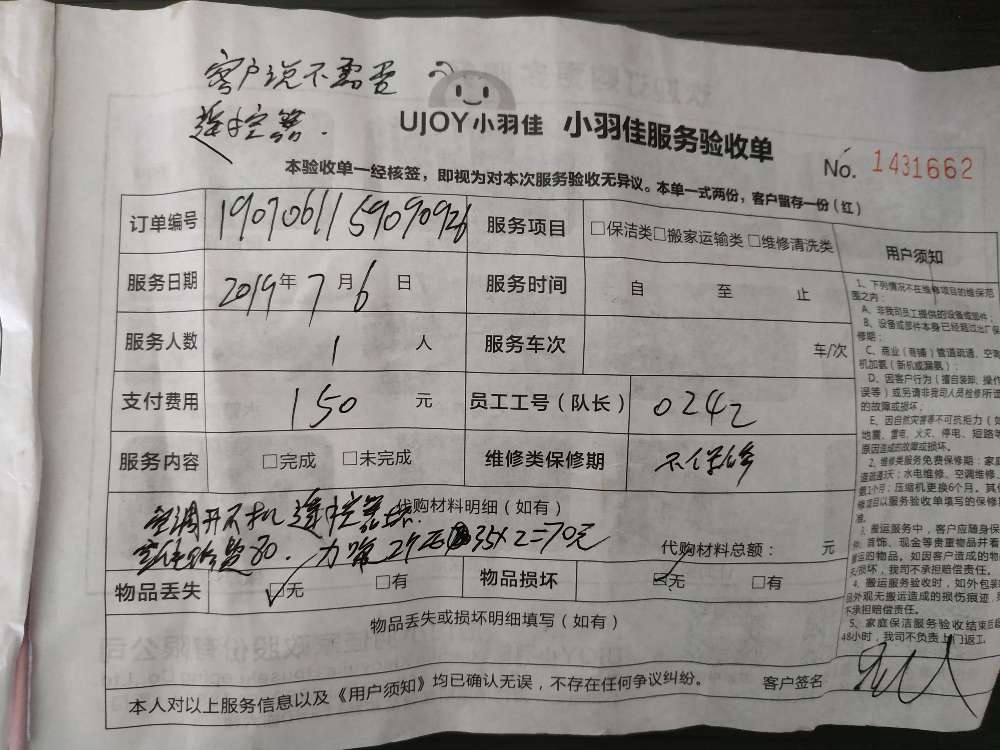 客户说不需要
遥控器.
UJOY小羽佳 小羽佳服务验收单
No. 1431662
本验收单一经核签，即视为对本次服务验收无异议。本单一式两份，客户留存一份（红）
订单编号 190706115909092 服务项目 □保洁类□搬家运输类 □维修清洗类
服务日期 2019年 7月6日 服务时间 自 至 止
服务人数 1 人 服务车次 车/次
支付费用 150 元 员工工号（队长） 0242
服务内容 □完成 □未完成 维修类保修期 不保修
代购材料明细（如有）
空调开不机 遥控器坏
费80. 2 35X2=70元
代购材料总额： 元
物品丢失 □无 □有 物品损坏 □无 □有
物品丢失或损坏明细填写（如有）
本人对以上服务信息以及《用户须知》均已确认无误，不存在任何争议纠纷。 客户签名
用户须知
1、下列情况不在维修项目的维保范
围之内：
A、非我司员工提供的设备或部件；
B、设备或部件本身已经超过出厂保
修期；
C、商业（商铺）管道疏通、空
机加氨（新机或漏氨）；
D、因客户行为（擅自装卸、操作
误等）或另请非我司人员检修所
的故障或损坏；
E、因自然灾害等不可抗拒力（如
地震、雷电、火灾、停电、短路
原因造成的故障或损坏。
2、维修类服务免费保修期：家
道疏通3天；水电维修、空调维修、
1个月；压缩机更换6个月。其
修项目以服务验收单填写的保修
准。
搬运服务中，客户应随身保
首饰、现金等贵重物品并看
运的物品。如因客户造成的物
失/损坏，我司不承担赔偿责任。
4、搬运服务验收时，如外包装
品外观无搬运造成的损伤痕迹，
不承担赔偿责任。
5、家庭保洁服务验收结束后超
48小时，我司不负责上门返工。